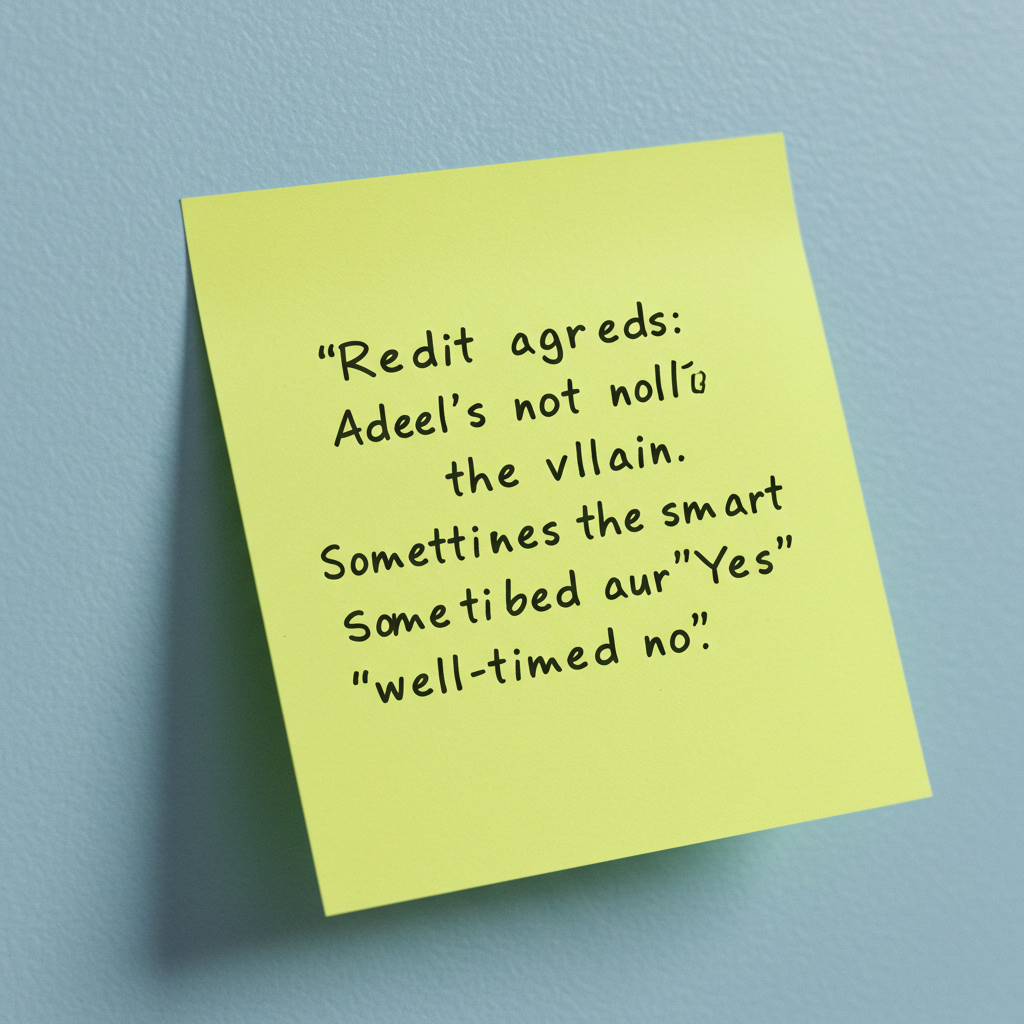 “Redit agreds:
Adeel’s not
the vllain.
Somettines the smart
Sometibed aur ”Yes”
"well-timed no”.